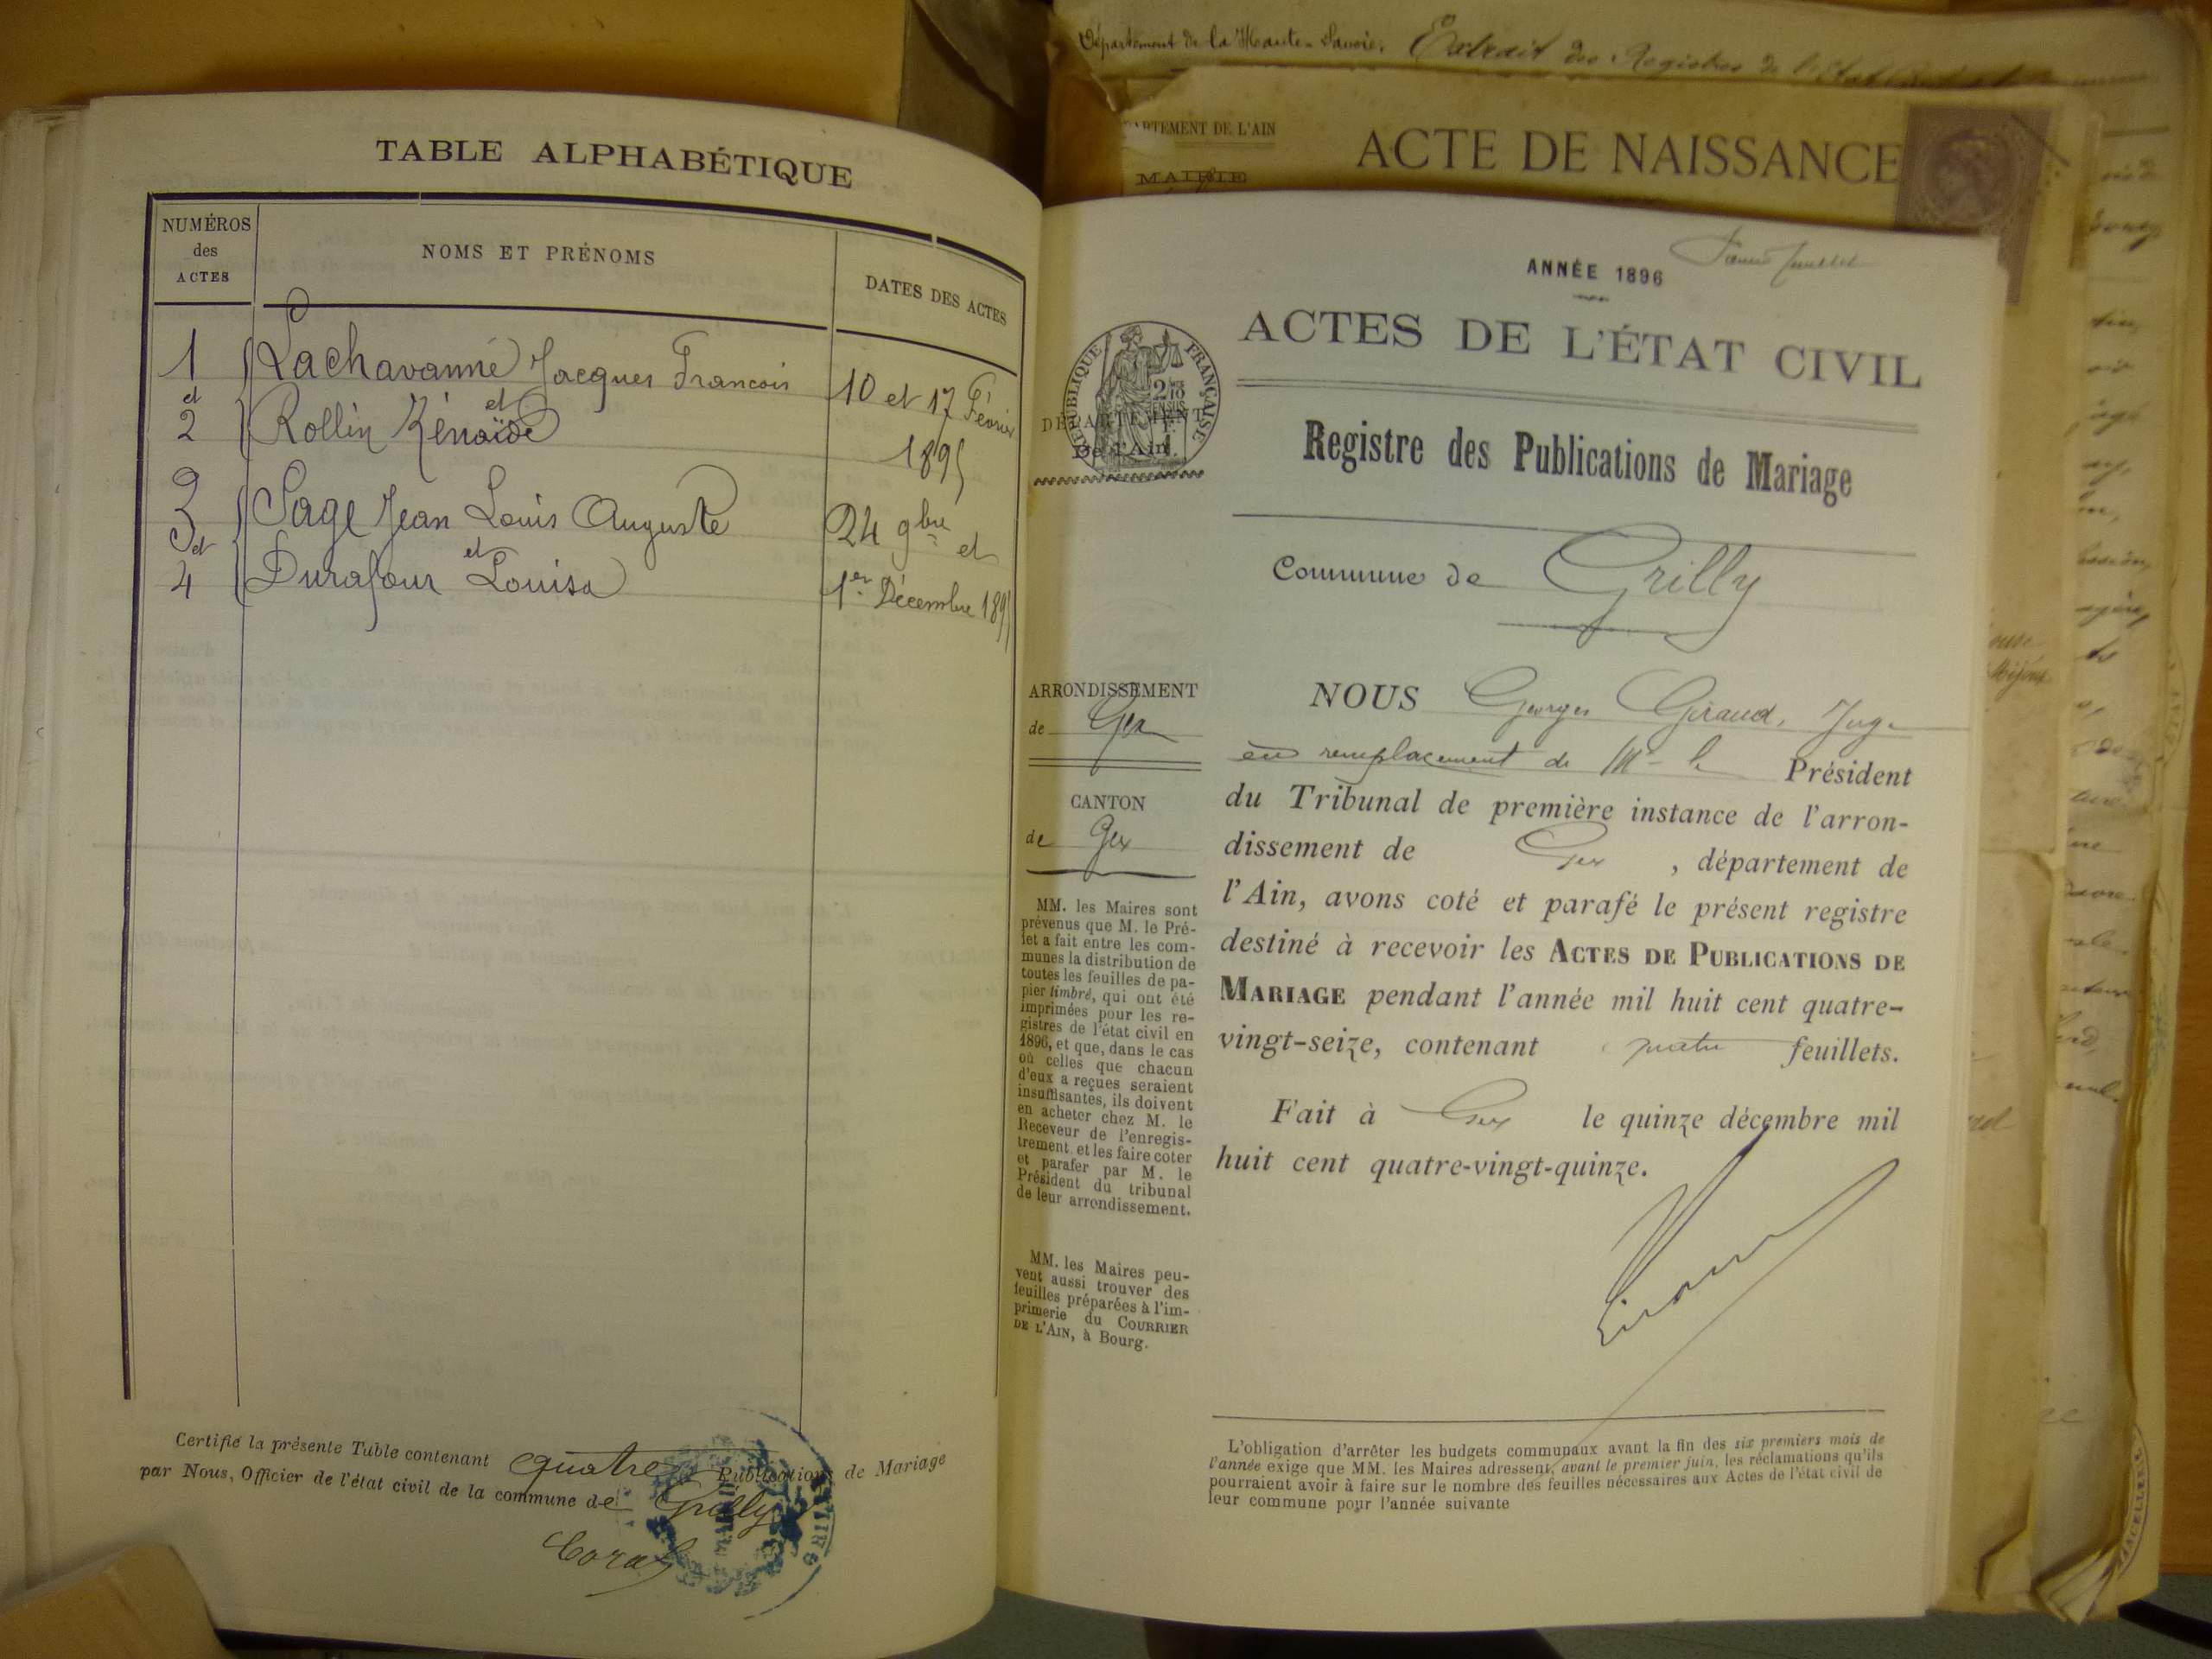 TABLE ALPHABÉTIQUE
NUMÉROS
des
ACTES
NOMS ET PRÉNOMS
DATES DES ACTES
1
et
2
Lachavanne Jacques Francois
et
Rollin Zénaïde
10 et 17 Février
1895
3
et
4
Sage Jean Louis Auguste
et
Durafour Louisa
24 9bre et
1er Décembre 1895
Certifié la présente Table contenant quatre Publications de Mariage
par Nous, Officier de l'état civil de la commune de Grilly
Département de la Haute-Savoie. Extrait des Registres de l'Etat
DÉPARTEMENT DE L'AIN
MAIRIE
ACTE DE NAISSANCE
ANNÉE 1896
ACTES DE L'ÉTAT CIVIL
RÉPUBLIQUE FRANÇAISE
DÉPARTEMENT
De l'Ain.
Registre des Publications de Mariage
Commune de Grilly
ARRONDISSEMENT
de Gex
CANTON
de Gex
MM. les Maires sont
prévenus que M. le Pré-
fet a fait entre les com-
munes la distribution de
toutes les feuilles de pa-
pier timbré, qui ont été
imprimées pour les re-
gistres de l'état civil en
1896, et que, dans le cas
où celles que chacun
d'eux a reçues seraient
insuffisantes, ils doivent
en acheter chez M. le
Receveur de l'enregis-
trement et les faire coter
et parafer par M. le
Président du tribunal
de leur arrondissement.
MM. les Maires peu-
vent aussi trouver des
feuilles préparées à l'im-
primerie du COURRIER
DE L'AIN, à Bourg.
NOUS Georges Giraud, Juge
en remplacement de Mr le Président
du Tribunal de première instance de l'arron-
dissement de Gex , département de
l'Ain, avons coté et parafé le présent registre
destiné à recevoir les ACTES DE PUBLICATIONS DE
MARIAGE pendant l'année mil huit cent quatre-
vingt-seize, contenant quatre feuillets.
Fait à Gex le quinze décembre mil
huit cent quatre-vingt-quinze.
L'obligation d'arrêter les budgets communaux avant la fin des six premiers mois de
l'année exige que MM. les Maires adressent, avant le premier juin, les réclamations qu'ils
pourraient avoir à faire sur le nombre des feuilles nécessaires aux Actes de l'état civil de
leur commune pour l'année suivante